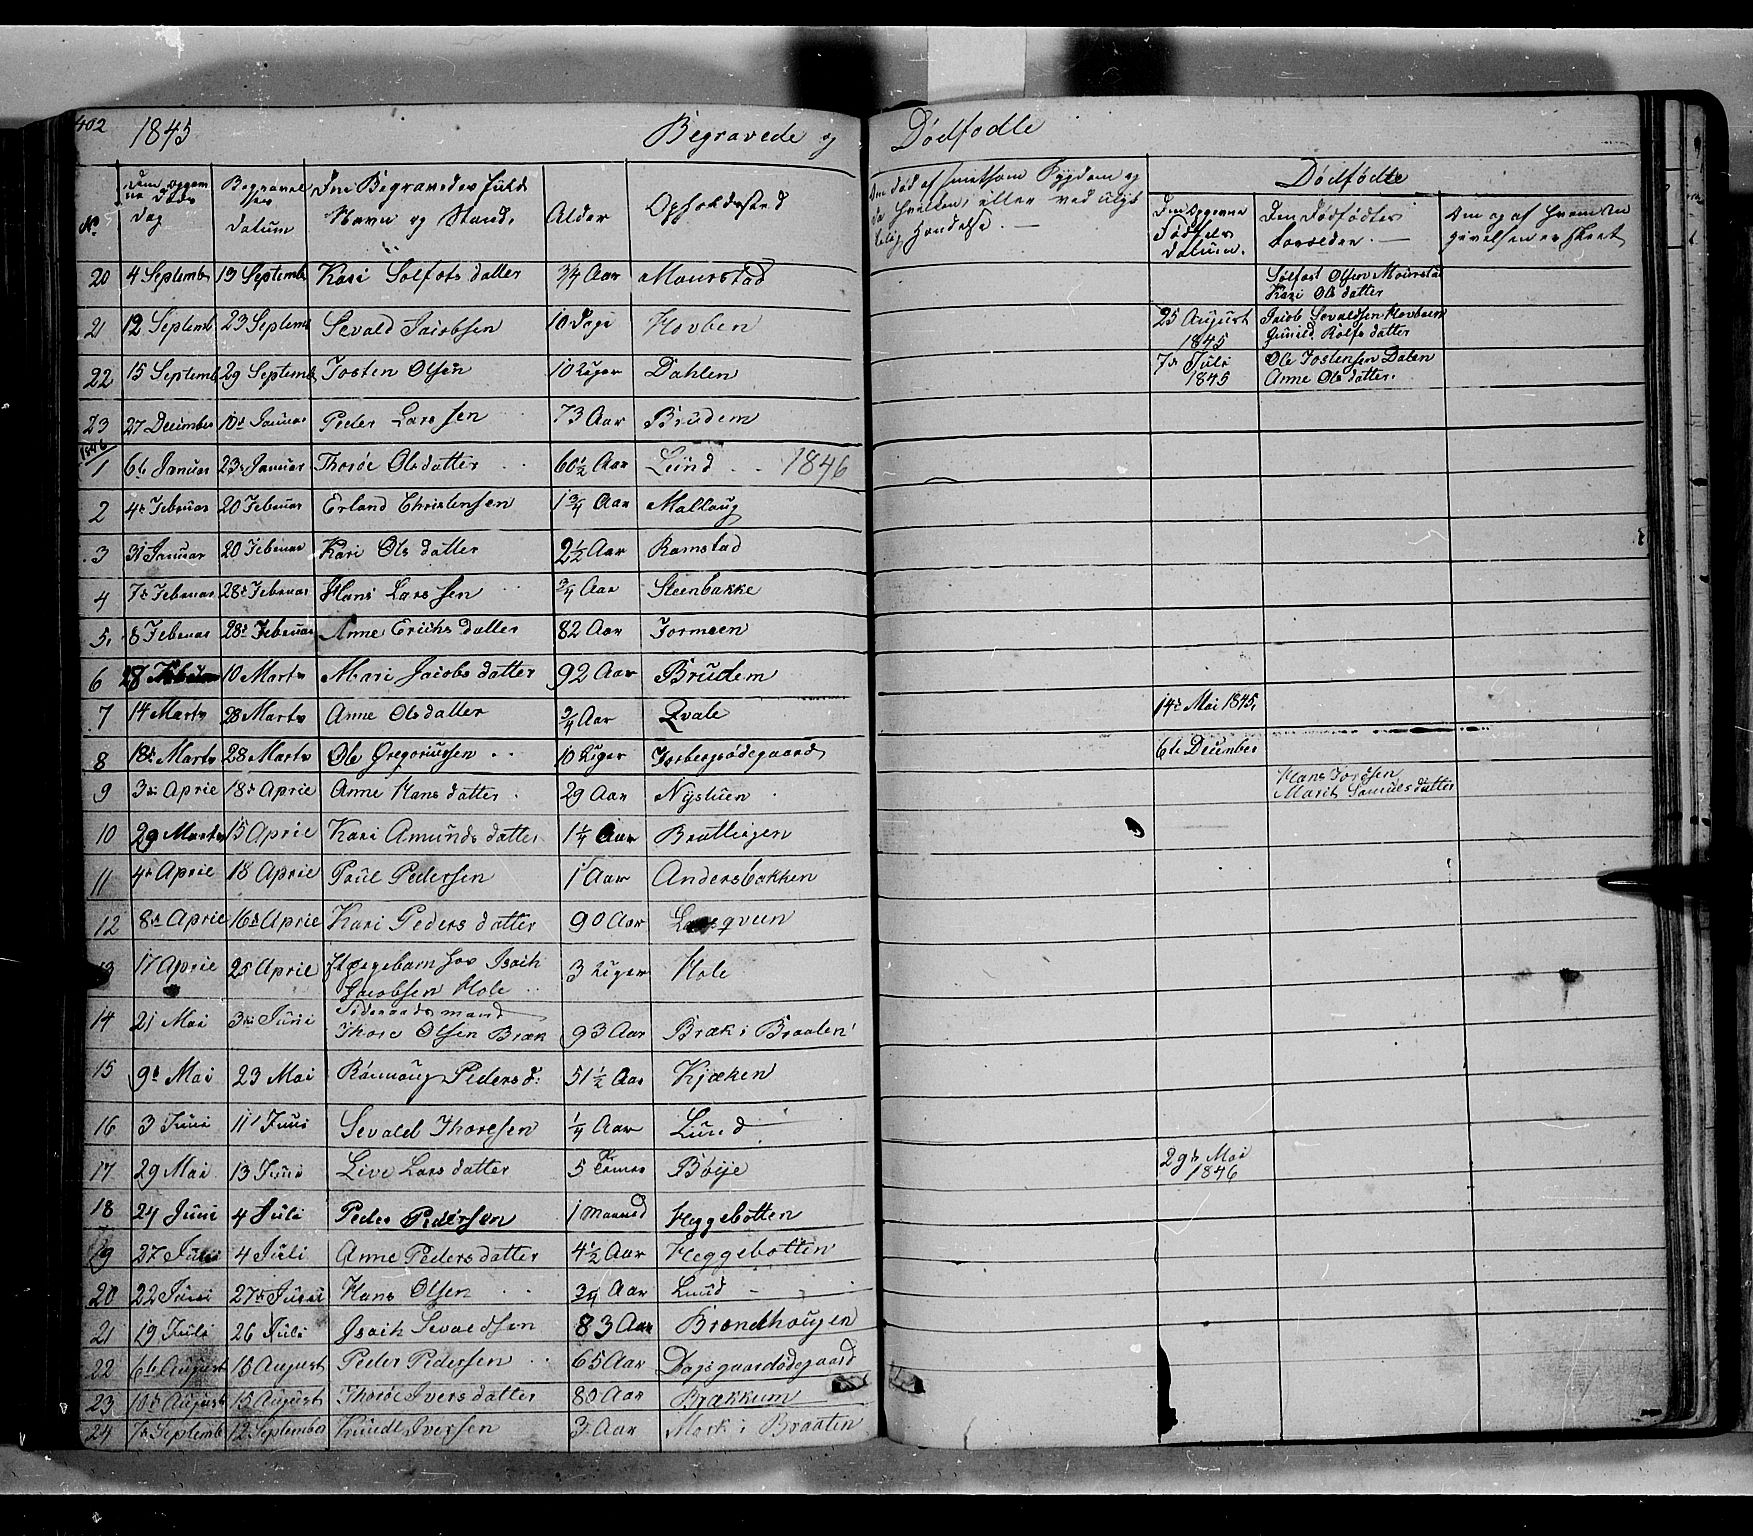 402 1845 Begravede og Dødfødte
No Den Opgivne Døds Dag Begravelsens Datum Den Begravedes fulde Navn og Stand. Alder Opholdssted
Dødfødte
Den Opgivne Fødsels Datum. Den Dødfødtes Forældre.
20 4 Septembr 13 Septembr Kari Solfots datter 3/4 Aar Maurstad Solfost Olsen Maurstad
Kari Ols datter
21 12 Septemb 23 Septemb Sevald Jacobsen 10 Dage Hovben 25 August Jacob Sevaldsen Hovben
1845 Gunild Rolfs datter
22 15 Septemb 29 Septemb Josten Olsen 10 Uger Dahlen 7de Juli Ole Jostensen Dalen
1845 Anne Ols datter.
23 27 December 10de Januar Peder Larssen 73 Aar Brudem
1846
1 6te Januar 23de Januar Thorøe Olsdatter 60 1/2 Aar Lund 1846
2 4de Februar 20 Februar Erland Christensen 1 3/4 Aar Mallaug
3 31 Januar 20 Februar Kari Ols datter 2 1/2 Aar Ramstad
4 7de Februar 28de Februar Hans Larssen 3/4 Aar Steenbakke
5 8 Februar 28de Februar Anne Erichs datter 82 Aar Formoen
6 28 Februar 10 Marts Mari Jacobs datter 92 Aar Brudem
7 14 Marts 28 Marts Anne Olsdatter 3/4 Aar Qvale 14de Mai 1845,
8 18de Marts 28 Marts Ole Gregoriussen 10 Uger Forbergsødegaard 6te December
9 3die Aprie 18de Aprie Anne Hans datter 29 Aar Nystuen Hans
Marit Samuelsdatter
10 29 Marts 15 Aprie Kari Amunds datter 1 1/4 Aar Bratlien
11 4de Aprie 18 Aprie Poul Pedersen 1 Aar Andersbakken
12 8de Aprie 16de Aprie Kari Peders datter 90 Aar
13 17 Aprie 25 Aprie Pigebarn for Isach 3 Uger Hole
Jacobsen Hole
14 21 Mai 3die Juni Føderaadsmand
Thore Olsen Bræk 93 Aar Bræk i Braaten
15 9de Mai 23 Mai Rønnaug Pedersd: 51 1/2 Aar Kjæken
16 3 Juni 11 Juni Sevald Thoresen 1/4 Aar Lund
17 29 Mai 13 Juni Live Lars datter 5 Timer Bøije 29de Mai
1846
18 24 Juni 4 Juli Peder Pedersen 1 Maaned Heggebotten
19 27 Juni 4 Juli Anne Peders datter 4 1/2 Aar Heggebotten
20 22 Juni 27de Juni Hans Olsen 3/4 Aar Lund
21 19 Juli 26 Juli Isach Sevaldsen 83 Aar Brændhougen
22 6te August 15 August Peder Pedersen 65 Aar Dagsgaardødegaard
23 10de August 15 August Thorøe Ivers datter 80 Aar Brækkum
24 7de Septemb 12 September Knudt Iversen 3 Aar Mork i Braaten